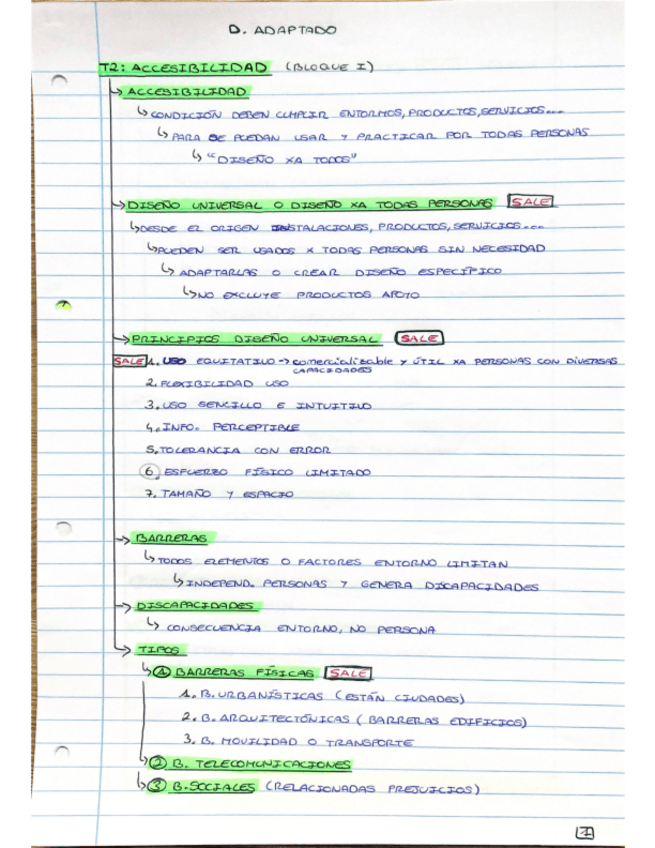 D. ADAPTADO
T2: ACCESIBILIDAD (BLOQUE I)
↳ ACCESIBILIDAD
↳ CONDICIÓN DEBEN CUMPLIR ENTORNOS, PRODUCTOS, SERVICIOS...
↳ PARA SE PUEDAN USAR Y PRACTICAR POR TODAS PERSONAS
↳ "DISEÑO XA TODOS"
→ DISEÑO UNIVERSAL O DISEÑO XA TODAS PERSONAS SALE
↳ DESDE EL ORIGEN INSTALACIONES, PRODUCTOS, SERVICIOS...
↳ PUEDEN SER USADOS X TODAS PERSONAS SIN NECESIDAD
↳ ADAPTARLAS O CREAR DISEÑO ESPECÍFICO
↳ NO EXCLUYE PRODUCTOS APOYO
→ PRINCIPIOS DISEÑO UNIVERSAL SALE
SALE 1. USO EQUITATIVO → comercializable y ÚTIL XA PERSONAS CON DIVERSAS
CAPACIDADES
2. FLEXIBILIDAD USO
3. USO SENCILLO E INTUITIVO
4. INFO. PERCEPTIBLE
5. TOLERANCIA CON ERROR
6. ESFUERZO FÍSICO LIMITADO
7. TAMAÑO Y ESPACIO
→ BARRERAS
↳ TODOS ELEMENTOS O FACTORES ENTORNO LIMITAN
↳ INDEPEND. PERSONAS Y GENERA DISCAPACIDADES
→ DISCAPACIDADES
↳ CONSECUENCIA ENTORNO, NO PERSONA
↳ TIPOS
↳ ① BARRERAS FÍSICAS SALE
1. B. URBANÍSTICAS (ESTÁN CIUDADES)
2. B. ARQUITECTÓNICAS (BARRERAS EDIFICIOS)
3. B. MOVILIDAD O TRANSPORTE
↳ ② B. TELECOMUNICACIONES
↳ ③ B. SOCIALES (RELACIONADAS PREJUICIOS)
1